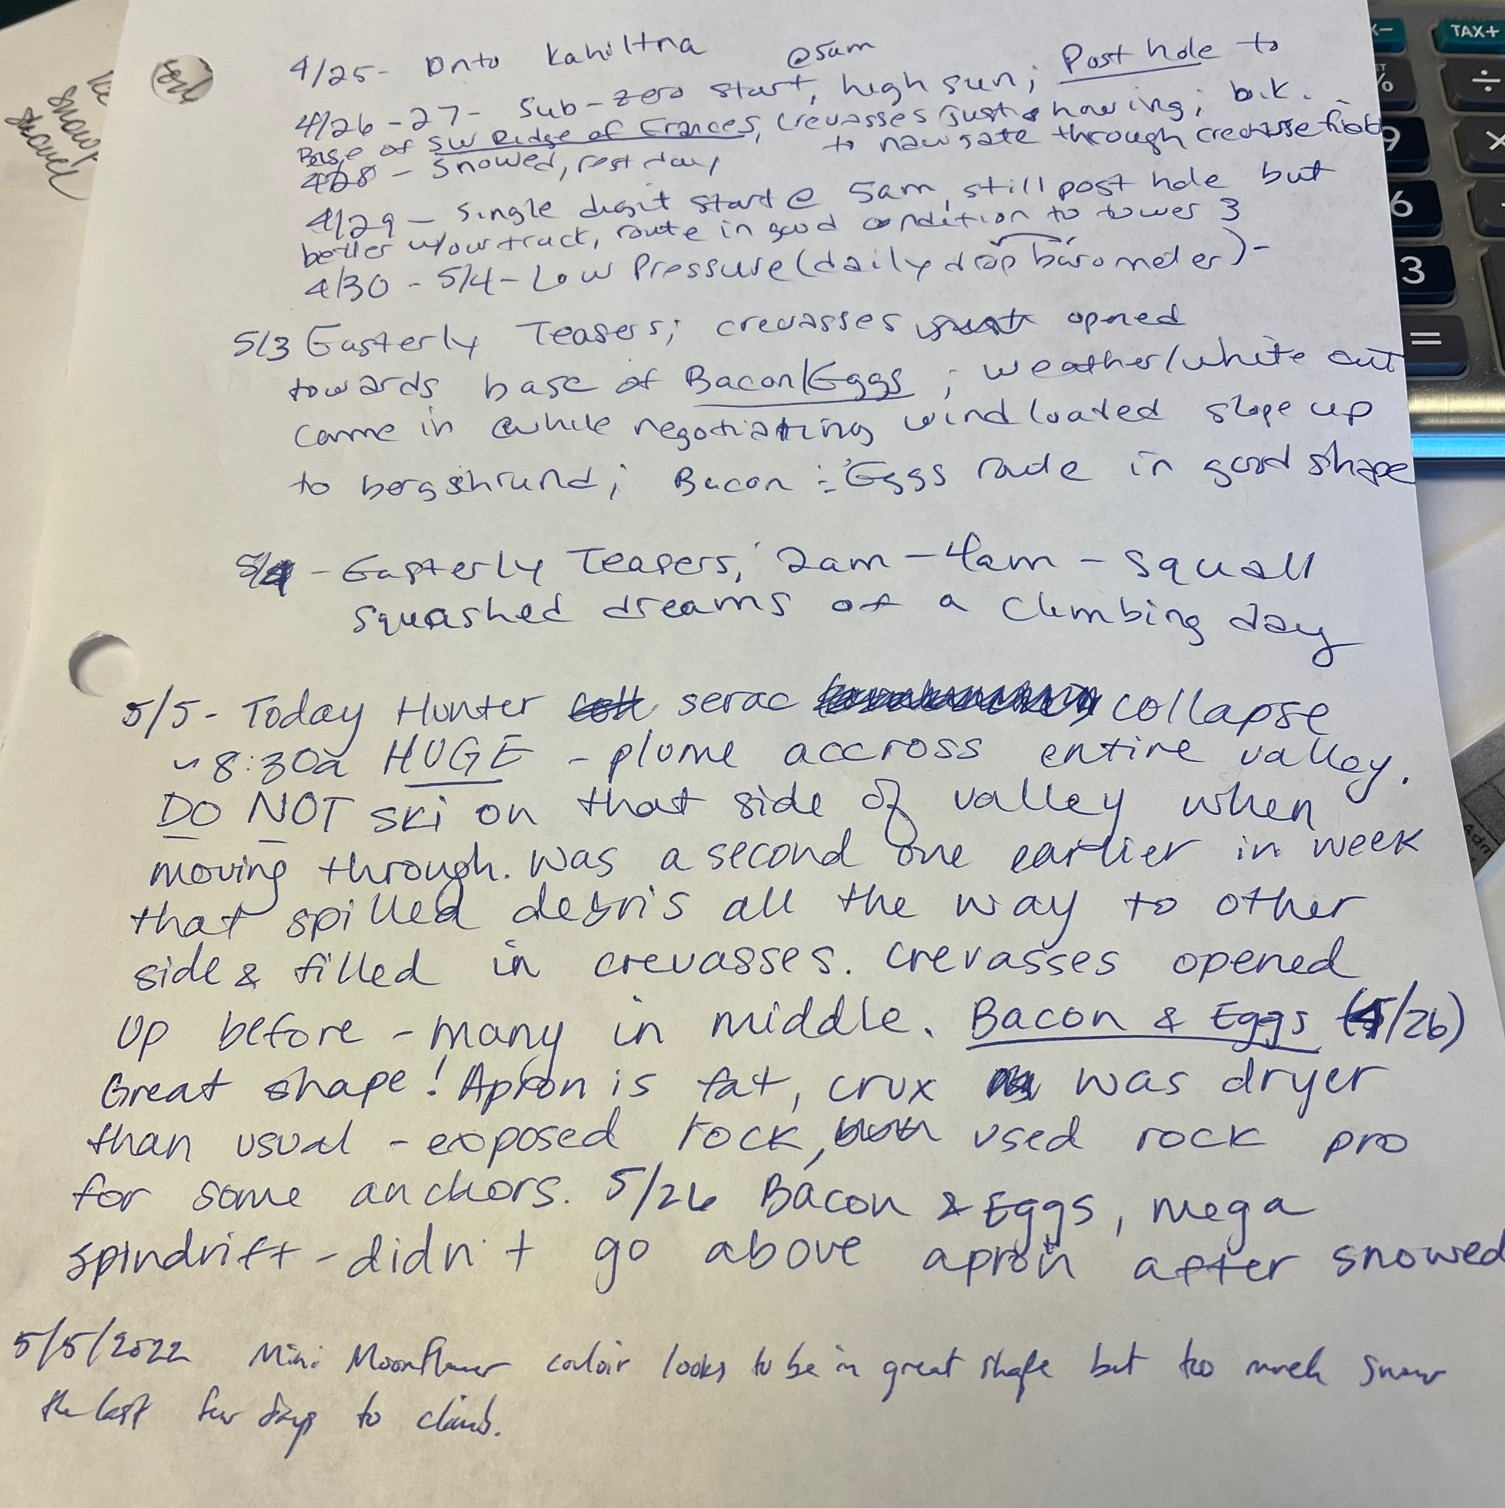 4/25- Onto Kahiltna
4/26-27- Sub-zero start, @5am high sun; Post hole to
Base of SW Ridge of Frances, crevasses just showing; b.k.
to navigate through crevasse field
4/28 - Snowed, rest day
4/29 - Single digit start @ 5am, still post hole but
better w/our track, route in good condition to tower 3
4/30 - 5/4 - Low Pressure (daily drop barometer) -
5/3 Easterly Teasers; crevasses just opened
towards base of Bacon/Eggs ; weather/white out
came in while negotiating wind loaded slope up
to bergshrund; Bacon : Eggs route in good shape
5/4 - Easterly Teasers; 2am - 4am - Squall
squashed dreams of a climbing day
5/5 - Today Hunter serac collapse
~8:30a HUGE - plume accross entire valley.
DO NOT ski on that side of valley when
moving through. Was a second one earlier in week
that spilled debris all the way to other
side & filled in crevasses. Crevasses opened
up before - many in middle. Bacon & Eggs (5/26)
Great shape! Apron is fat, crux was dryer
than usual - exposed rock, used rock pro
for some anchors. 5/26 Bacon & Eggs, mega
spindrift - didn't go above apron after snowed
5/5/2022 Mini Moonflower couloir looks to be in great shape but too much snow
the last few days to climb.
snow
shovel
TAX+
%
÷
9
×
6
3
=